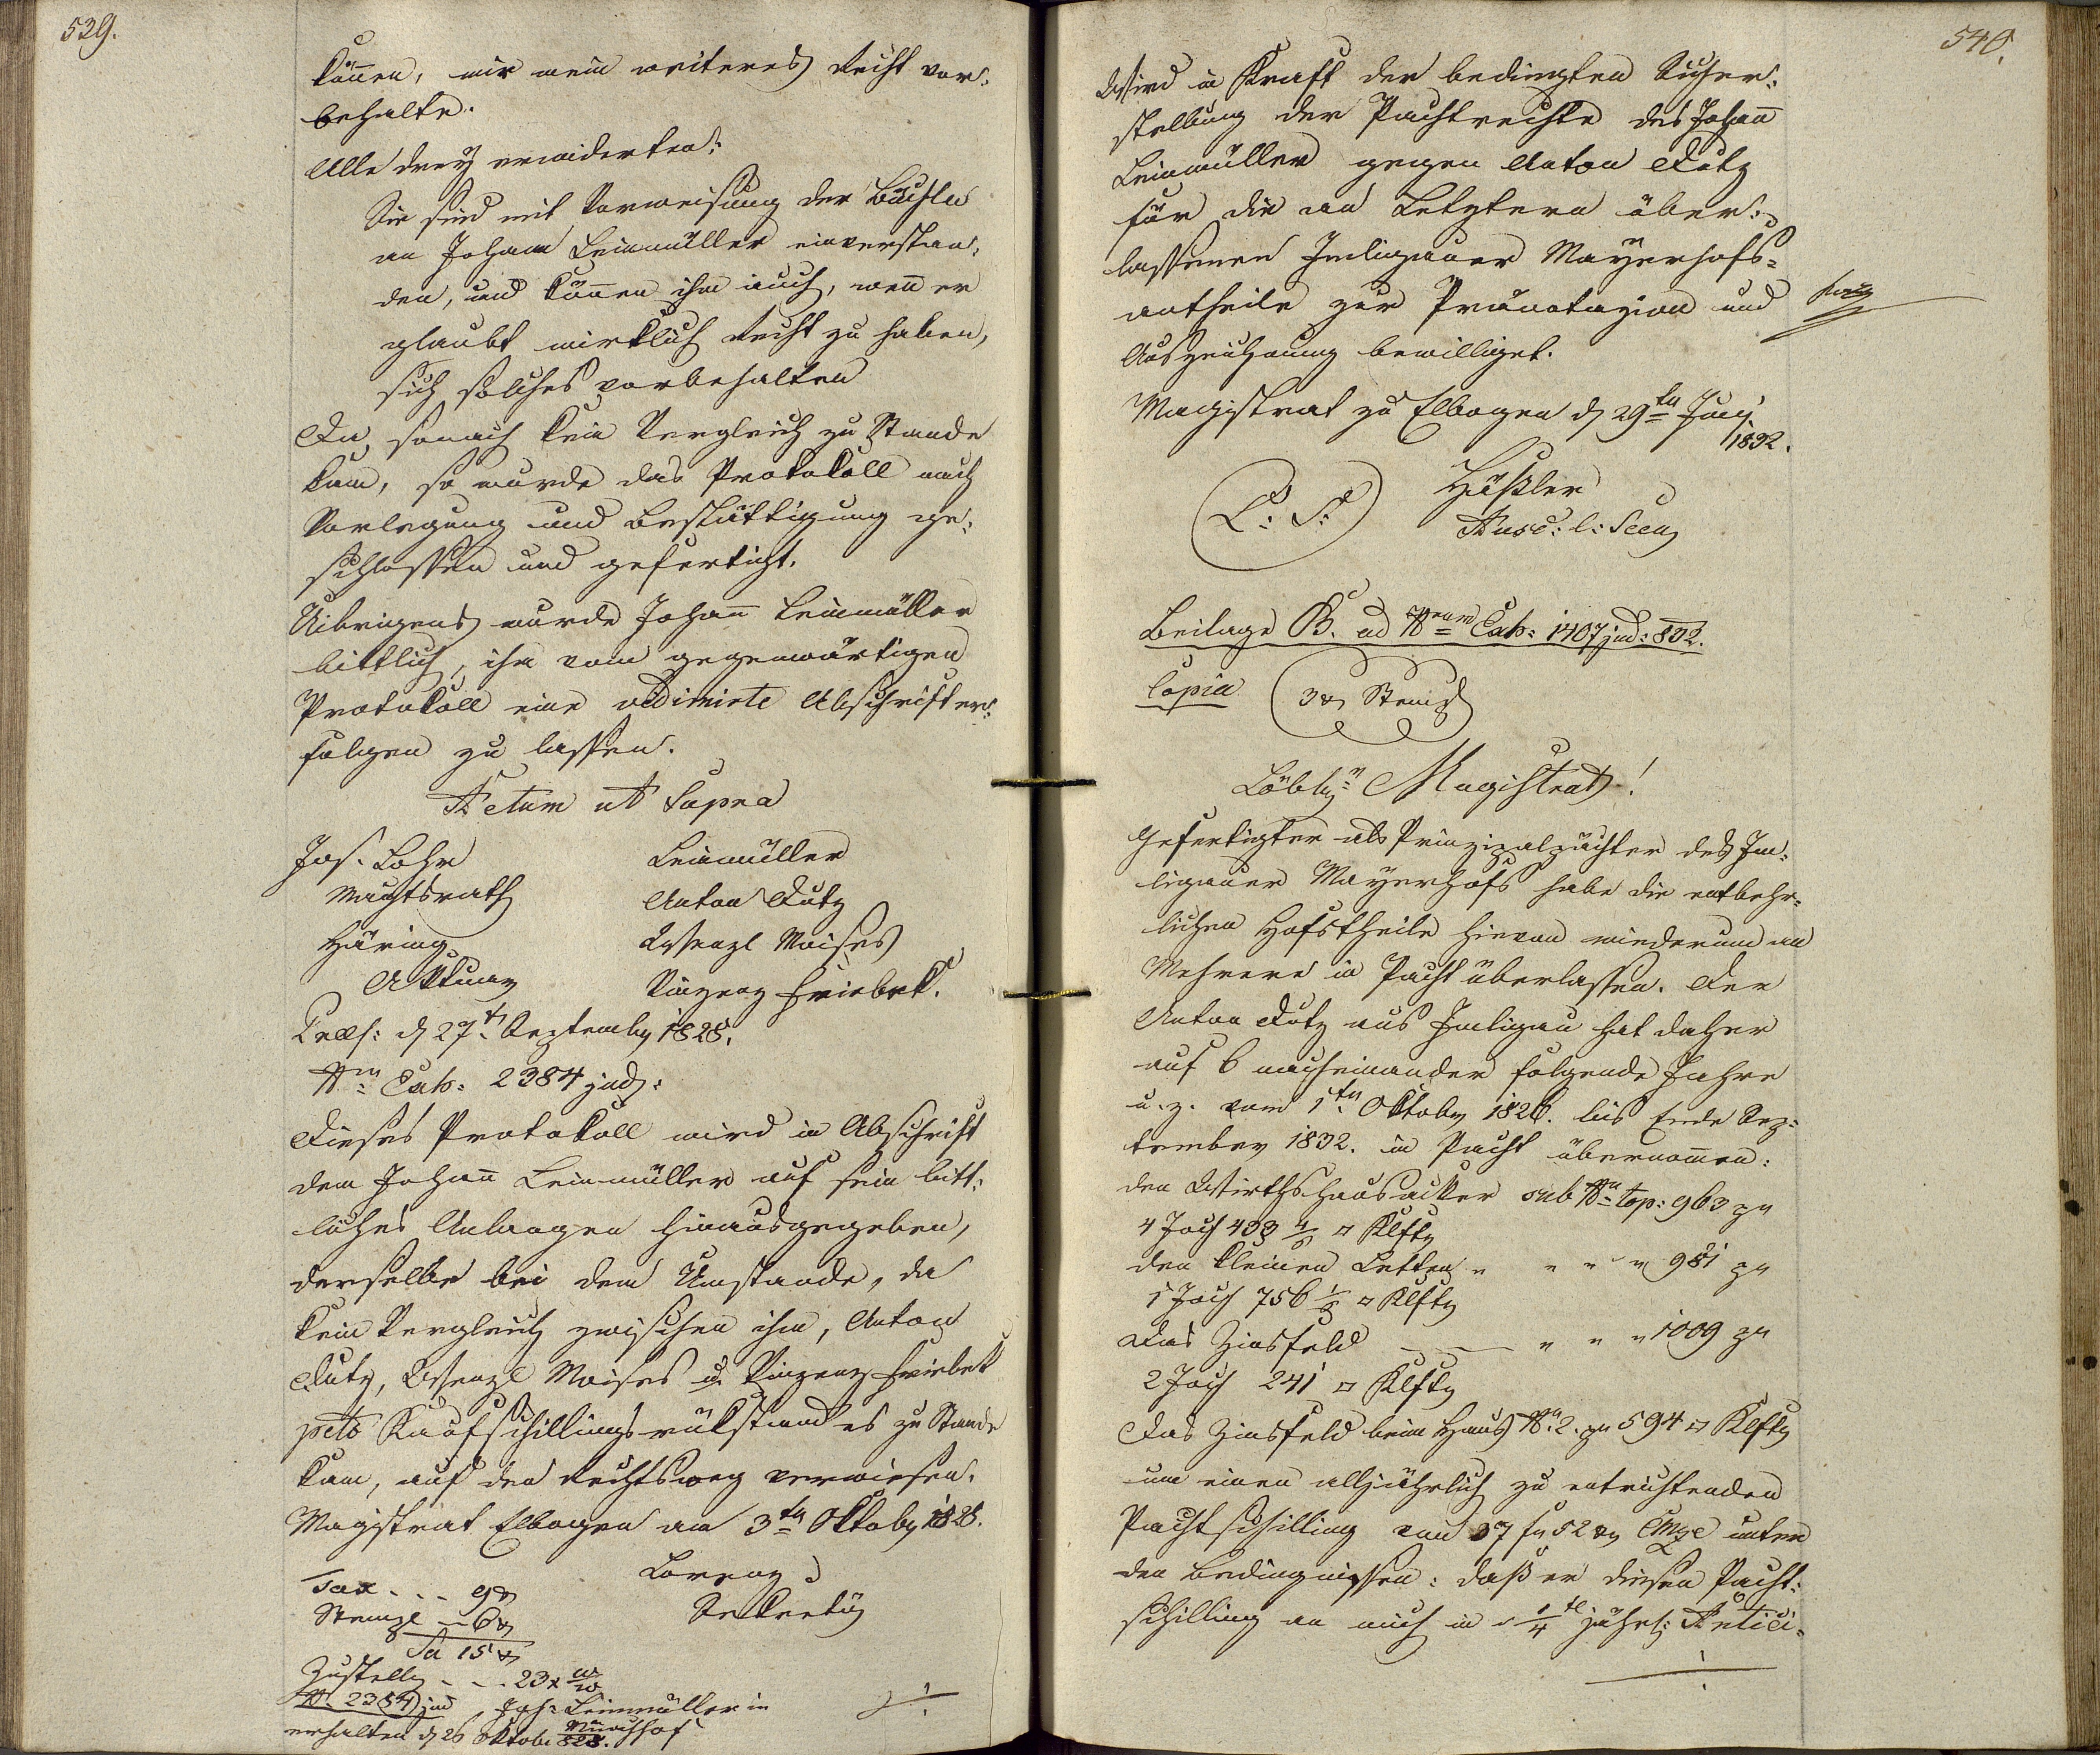 539.
können, mir mein weiteres Recht vor:
behalte.
Alle drey erwiderten:
Sie sind mit Vorweisung der Bücheln
an Johann Leinmüller einverstan:
den, und können ihm auch, wenn er
glaubt wirklich Recht zu haben,
sich solches vorbehalten
Da sonach kein Vergleich zu Stande
kam, so wurde das Protokoll nach
Vorlegung und Bestättigung ge:
schlossen und gefertigt.
Uibrigens wurde Johann Leinmüller
bittlich, ihm vom gegenwärtigen
Protokoll eine vidimirte Abschrift er:
folgen zu lassen.
Actum ut Supra
Jos. Lohr Leinmüller
Magtsrath Anton Dutz
Häring Wenzl Moises
Aktuar Vinzenz Friebek.
Praes: d 27t September 1828.
Nrn Exh: 2384 jud:
Dieses Protokoll wird in Abschrift
dem Johann Leinmüller auf sein bitt:
liches Anlangen hinausgegeben,
derselbe bei dem Umstande, da
kein Vergleich zwischen ihm, Anton
Dutz, Wenzl Moises u. Vinzenz Friebek
pcto Kaufschillingsrükstandes zu Stande
kam, auf den Rechtsweg verwiesen.
Magistrat Elbogen am 3tn Oktober 1828.
Lorenz
Tax - - - 9 x
Sekretär
Stempl - 6 x
Sa 15 x
Zustellg - - . 23 x WW
N. 2384 jud Joh: Leinmüller in
erhalten d 26 Oktob 828. Münchhof
540.
Wird in Kraft der bedingten Sicher:
stellung der Pachtrechte des Johann
Leinmüller gegen Anton Dutz
für die an Letztern über:
lassenen Imligauer Mayerhofs=
antheile zur Pränotazion und
Auszeichnung bewilliget.
Magistrat zu Elbogen d 29tn Juny
1832.
L: S: Häßler
Ausc: l: Secr
Beilage B. ad Nrum Exh: 1407 jud: 832.
Copia 3 x Stempl
Löblr Magistrat!
Gefertigter als Prinzipalpächter des Im:
ligauer Mayerhofs habe die entbehr=
lichen Hofstheile hievon wiederum an
Mehrere in Pacht überlassen. Der
Anton Dutz aus Imligau hat daher
auf 6 nacheinander folgende Jahre
u. z. vom 1tn Oktober 1826. bis Ende Sep:
tember 1832. in Pacht übernommen:
den Wirthshausacker sub Nrn top: 963 pr
4 Joch 433 4/6 □ Klftr
den kleinen Letten " " " " 981 pr
1 Joch 756 □ Klftr
Das Zinsfeld " " " 1009 pr
2 Joch 241 □ Klftr
Das Zinsfeld beim Haus Nr 2. pr 594 □ Klftr
um einen alljährlich zu entrichtenden
Pachtschilling von 37 fr 52 xr CMze unter
den Bedingnissen: daß er diesen Pacht:
schilling an mich in 1/4tl jährl: Antici=